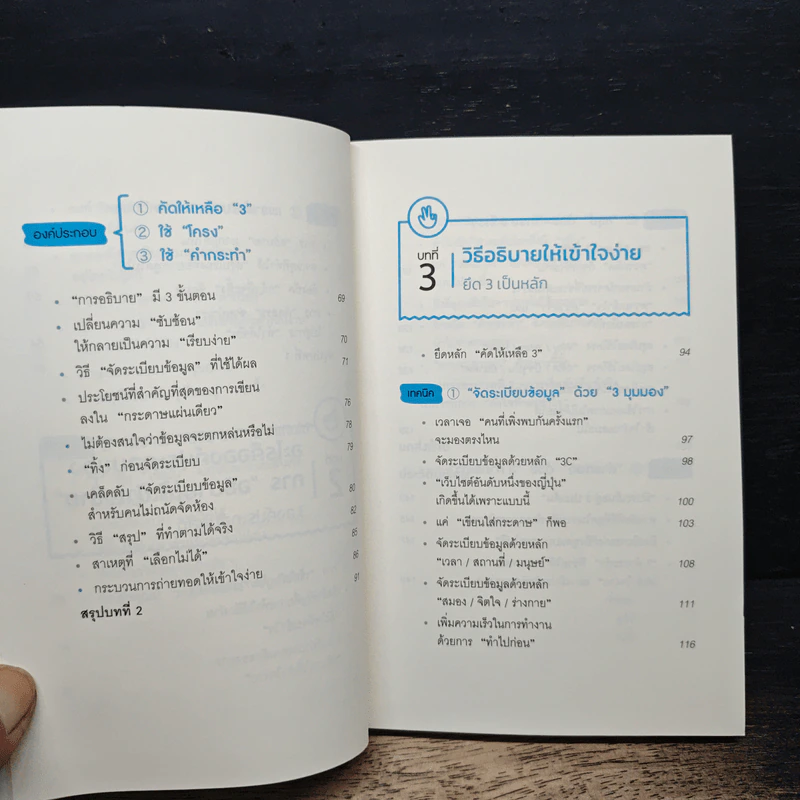 องค์ประกอบ
① คัดให้เหลือ “3”
② ใช้ “โครง”
③ ใช้ “คำกระทำ”
• “การอธิบาย” มี 3 ขั้นตอน 69
• เปลี่ยนความ “ซับซ้อน”
ให้กลายเป็นความ “เรียบง่าย” 70
• วิธี “จัดระเบียบข้อมูล” ที่ใช้ได้ผล 71
• ประโยชน์ที่สำคัญที่สุดของการเขียน
ลงใน “กระดาษแผ่นเดียว” 76
• ไม่ต้องสนใจว่าข้อมูลจะตกหล่นหรือไม่ 78
• “ทิ้ง” ก่อนจัดระเบียบ 79
• เคล็ดลับ “จัดระเบียบข้อมูล”
สำหรับคนไม่ถนัดจัดห้อง 80
• วิธี “สรุป” ที่ทำตามได้จริง 82
• สาเหตุที่ “เลือกไม่ได้” 85
• กระบวนการถ่ายทอดให้เข้าใจง่าย 86
สรุปบทที่ 2 91
บทที่
3
วิธีอธิบายให้เข้าใจง่าย
ยึด 3 เป็นหลัก
• ยึดหลัก “คัดให้เหลือ 3” 94
เทคนิค ① “จัดระเบียบข้อมูล” ด้วย “3 มุมมอง”
• เวลาเจอ “คนที่เพิ่งพบกันครั้งแรก”
จะมองตรงไหน 97
• จัดระเบียบข้อมูลด้วยหลัก “3C” 98
• “เว็บไซต์อันดับหนึ่งของญี่ปุ่น”
เกิดขึ้นได้เพราะแบบนี้ 100
• แค่ “เขียนใส่กระดาษ” ก็พอ 103
• จัดระเบียบข้อมูลด้วยหลัก
“เวลา / สถานที่ / มนุษย์” 108
• จัดระเบียบข้อมูลด้วยหลัก
“สมอง / จิตใจ / ร่างกาย” 111
• เพิ่มความเร็วในการทำงาน
ด้วยการ “ทำไปก่อน” 116